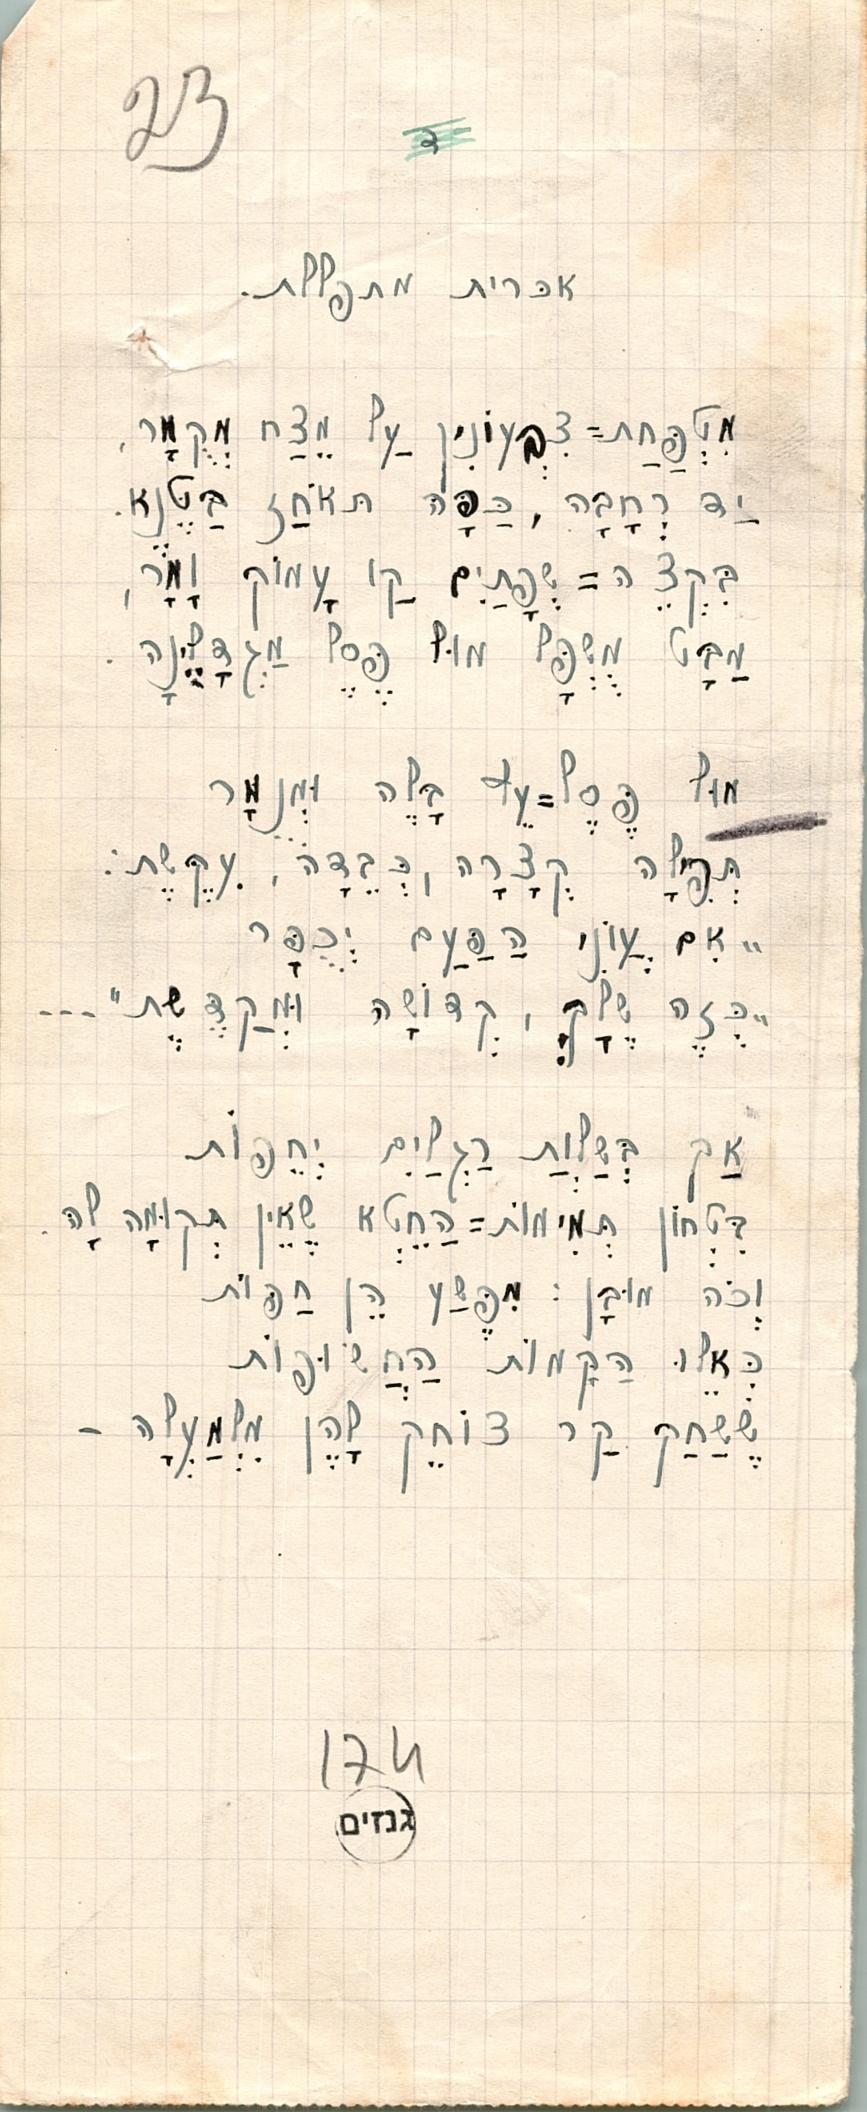 23
ד
אכרית מתפללת.
מִטְפַּחַת=צִבְעוֹנִין עַל מֵצַח מְקֻמָּר,
יַד רְחָבָה, כַּפָּה תֹאחַז בַּטֶּנֶא.
בִּקְצֵה=שְׂפָתַיִם קַו עָמוֹק וָמָר,
מַבָּט מֻשְׁפָּל מוּל פֶּסֶל מַגְדָּלֵינָה.
מוּל פֶּסֶל=עֵץ בָּלֶה וּמְנֻמָּר
תְּפִלָּה קְצָרָה, כְּבֵדָה, עִקֶּשֶׁת:
„אִם עֲוֹנִי הַפַּעַם יְכֻפָּר
„כְּזֶה שֶׁלָּךְ, קְדוֹשָׁה וּמְקַדֶּשֶׁת"...
אַךְ בְּשַׁלְוַת רַגְלַיִם יְחֵפוֹת
בִּטְחוֹן תְּמִימוֹת=הַחֵטְא שֶׁאֵין תְּקוּמָה לָהּ.
וְכֹה מוּבָן: מִפֶּשַׁע הֵן חַפּוֹת
כְּאִלּוּ הַקָּמוֹת הַחֲשׂוּפוֹת
שֶׁשַּׁחַק קַר צוֹחֵק לָהֶן מִלְמַעְלָה –
174
גנזים